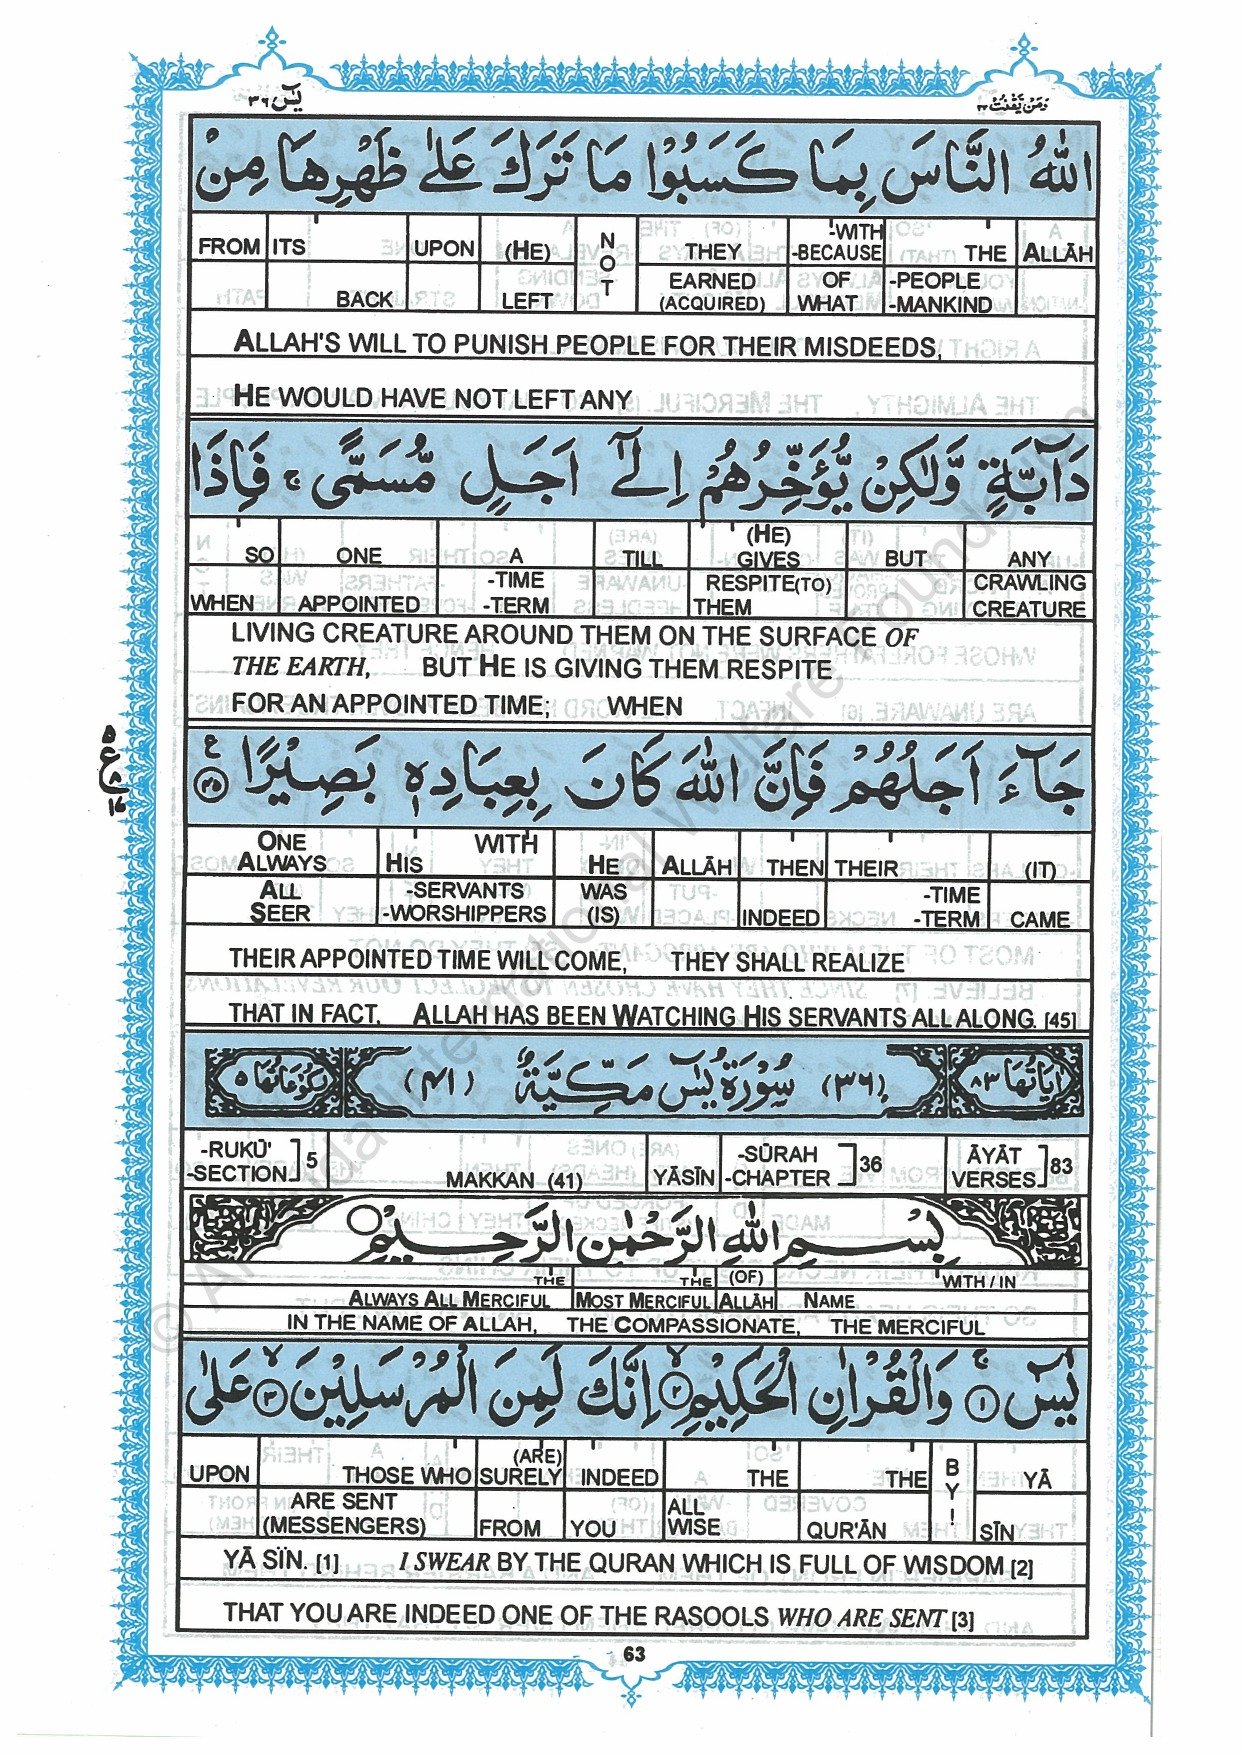 يٰسٓ ٣٦ وَمَنْ يَّقْنُتْ ٢٢
اللّٰهُ النَّاسَ بِمَا كَسَبُوْا مَا تَرَكَ عَلٰى ظَهْرِهَا مِنْ
FROM ITS UPON (HE) NOT THEY -WITH -BECAUSE THE ALLĀH
BACK LEFT EARNED (ACQUIRED) OF WHAT -PEOPLE -MANKIND
ALLAH'S WILL TO PUNISH PEOPLE FOR THEIR MISDEEDS,
HE WOULD HAVE NOT LEFT ANY
دَآبَّةٍ وَّلٰكِنْ يُّؤَخِّرُهُمْ اِلٰٓى اَجَلٍ مُّسَمًّى ۚ فَاِذَا
SO ONE A TILL (HE) GIVES BUT ANY
WHEN APPOINTED -TIME -TERM RESPITE(TO) THEM CRAWLING CREATURE
LIVING CREATURE AROUND THEM ON THE SURFACE OF
THE EARTH, BUT HE IS GIVING THEM RESPITE
FOR AN APPOINTED TIME; WHEN
جَآءَ اَجَلُهُمْ فَاِنَّ اللّٰهَ كَانَ بِعِبَادِهٖ بَصِيْرًا ۝٤٥ ع
٥ ع ٨ ١٦
ONE ALWAYS HIS WITH HE ALLĀH THEN THEIR (IT)
ALL SEER -SERVANTS -WORSHIPPERS WAS (IS) INDEED -TIME -TERM CAME
THEIR APPOINTED TIME WILL COME, THEY SHALL REALIZE
THAT IN FACT, ALLAH HAS BEEN WATCHING HIS SERVANTS ALL ALONG. [45]
اٰيَاتُهَا ٨٣ (٣٦) سُوْرَةُ يٰسٓ مَكِّيَّةٌ (٤١) رُكُوْعَاتُهَا ٥
-RUKŪ' -SECTION] 5 MAKKAN (41) YĀSĪN -SŪRAH -CHAPTER] 36 ĀYĀT VERSES] 83
بِسْمِ اللّٰهِ الرَّحْمٰنِ الرَّحِيْمِ
THE THE (OF) WITH / IN
ALWAYS ALL MERCIFUL MOST MERCIFUL ALLĀH NAME
IN THE NAME OF ALLAH, THE COMPASSIONATE, THE MERCIFUL
يٰسٓ ۚ ۝١ وَالْقُرْاٰنِ الْحَكِيْمِ ۙ ۝٢ اِنَّكَ لَمِنَ الْمُرْسَلِيْنَ ۙ ۝٣ عَلٰى
UPON THOSE WHO (ARE) SURELY INDEED THE THE BY! YĀ
ARE SENT (MESSENGERS) FROM YOU ALL WISE QUR'ĀN SĪN
YĀ SĪN. [1] I SWEAR BY THE QURAN WHICH IS FULL OF WISDOM [2]
THAT YOU ARE INDEED ONE OF THE RASOOLS WHO ARE SENT [3]
63